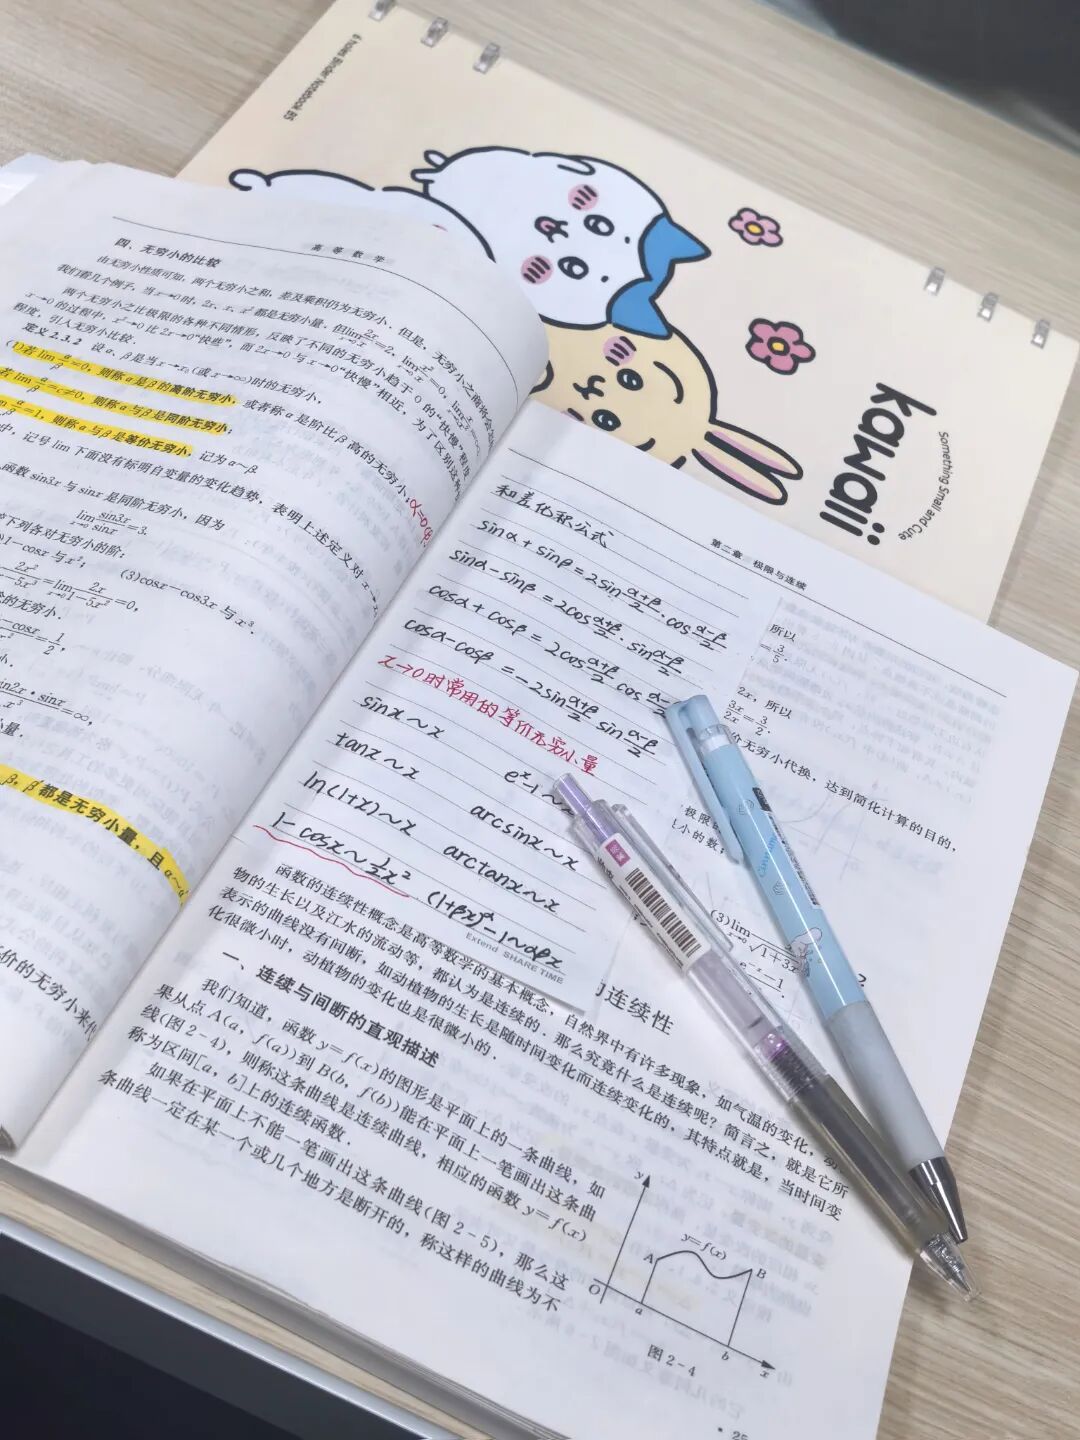 6 Holes Binder Notebook B5
kawaii
Something Small and Cute
高等数学
四、无穷小的比较
由无穷小性质可知，两个无穷小之和，差及乘积仍为无穷小．但是，无穷小之商将会
我们看几个例子，当x→0时，2x，x，x²都是无穷小量，但lim x→0 2x/x=2，lim x→0 x²/x=0，lim x→0
两个无穷小之比极限的各种不同情形，反映了不同的无穷小趋于0的“快慢”程度
x→0的过程中，x²→0比2x→0“快些”，而2x→0与x→0“快慢”相近，为了区别这种
程度，引入无穷小比较．
定义2.3.2 设α，β是当x→x₀(或x→∞)时的无穷小，
(1)若lim α/β=0，则称α是β的高阶无穷小，或者称α是阶比β高的无穷小；
若lim α/β=c≠0，则称α与β是同阶无穷小；
α/β=1，则称α与β是等价无穷小，记为α～β．
中，记号lim下面没有标明自变量的变化趋势，表明上述定义对x→
函数sin3x与sinx是同阶无穷小，因为
lim x→0 sin3x/sinx=3．
下列各对无穷小的阶：
1－cosx与x²； (3)cosx－cos3x与x³．
lim x→0 2x/1－5x³=0，
的无穷小．
－cosx/x²=1/2，
sin2x·sinx/x³=∞，
β，β′都是无穷小量，且α～α′
价的无穷小来代
第二章 极限与连续
和差化积公式
sinα+sinβ=2sin α+β/2·cos α-β/2
sinα-sinβ=2cos α+β/2·sin α-β/2
cosα+cosβ=2cos α+β/2 cos α-
cosα-cosβ=-2sin α+β/2 sin α-β/2
x→0时常用的等价无穷小量
sinx~x
eˣ-1~
tanx~x
arcsinx~x
ln(1+x)~x
arctanx~x
1-cosx~½x²
(1+βx)^α-1~αβx
Extend SHARE TIME
所以
=3/5．
2x，所以
3x/2x=3/2．
价无穷小代换，达到简化计算的目的，
极限
小的数
(3)lim x→0
的连续性
函数的连续性概念是高等数学的基本概念，自然界中有许多现象，如气温的变化，
物的生长以及江水的流动等，都认为是连续的．那么究竟什么是连续呢？简言之，就是它所
表示的曲线没有间断，如动植物的生长是随时间变化而连续变化的，其特点就是，当时间变
化很微小时，动植物的变化也是很微小的．
一、连续与间断的直观描述
我们知道，函数y=f(x)的图形是平面上的一条曲线，如
果从点A(a，f(a))到B(b，f(b))能在平面上一笔画出这条曲
线(图2-4)，则称这条曲线是连续曲线，相应的函数y=f(x)
称为区间[a，b]上的连续函数．
如果在平面上不能一笔画出这条曲线(图2-5)，那么这
条曲线一定在某一个或几个地方是断开的，称这样的曲线为不
y
y=f(x)
A
B
O
a
b
x
图2-4